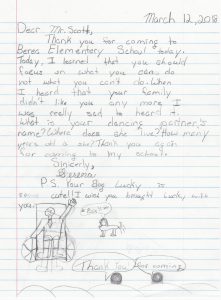 March 12, 2018
Dear Mr. Scott,
Thank you for coming to
Beres Elementary School today.
Today, I learned that you should
focus on what you can do
not what you can't do. When
I heard that your family
didn't like you any more I
was really sad to hear it.
What is your dancing partner's
name? Where does she live? How many
years old is she? Thank you again
for coming to my school.
Sincerely,
Serena
P.S. Your Dog Lucky is
so cute! I wish you brought Lucky with
you.
Thank You for coming